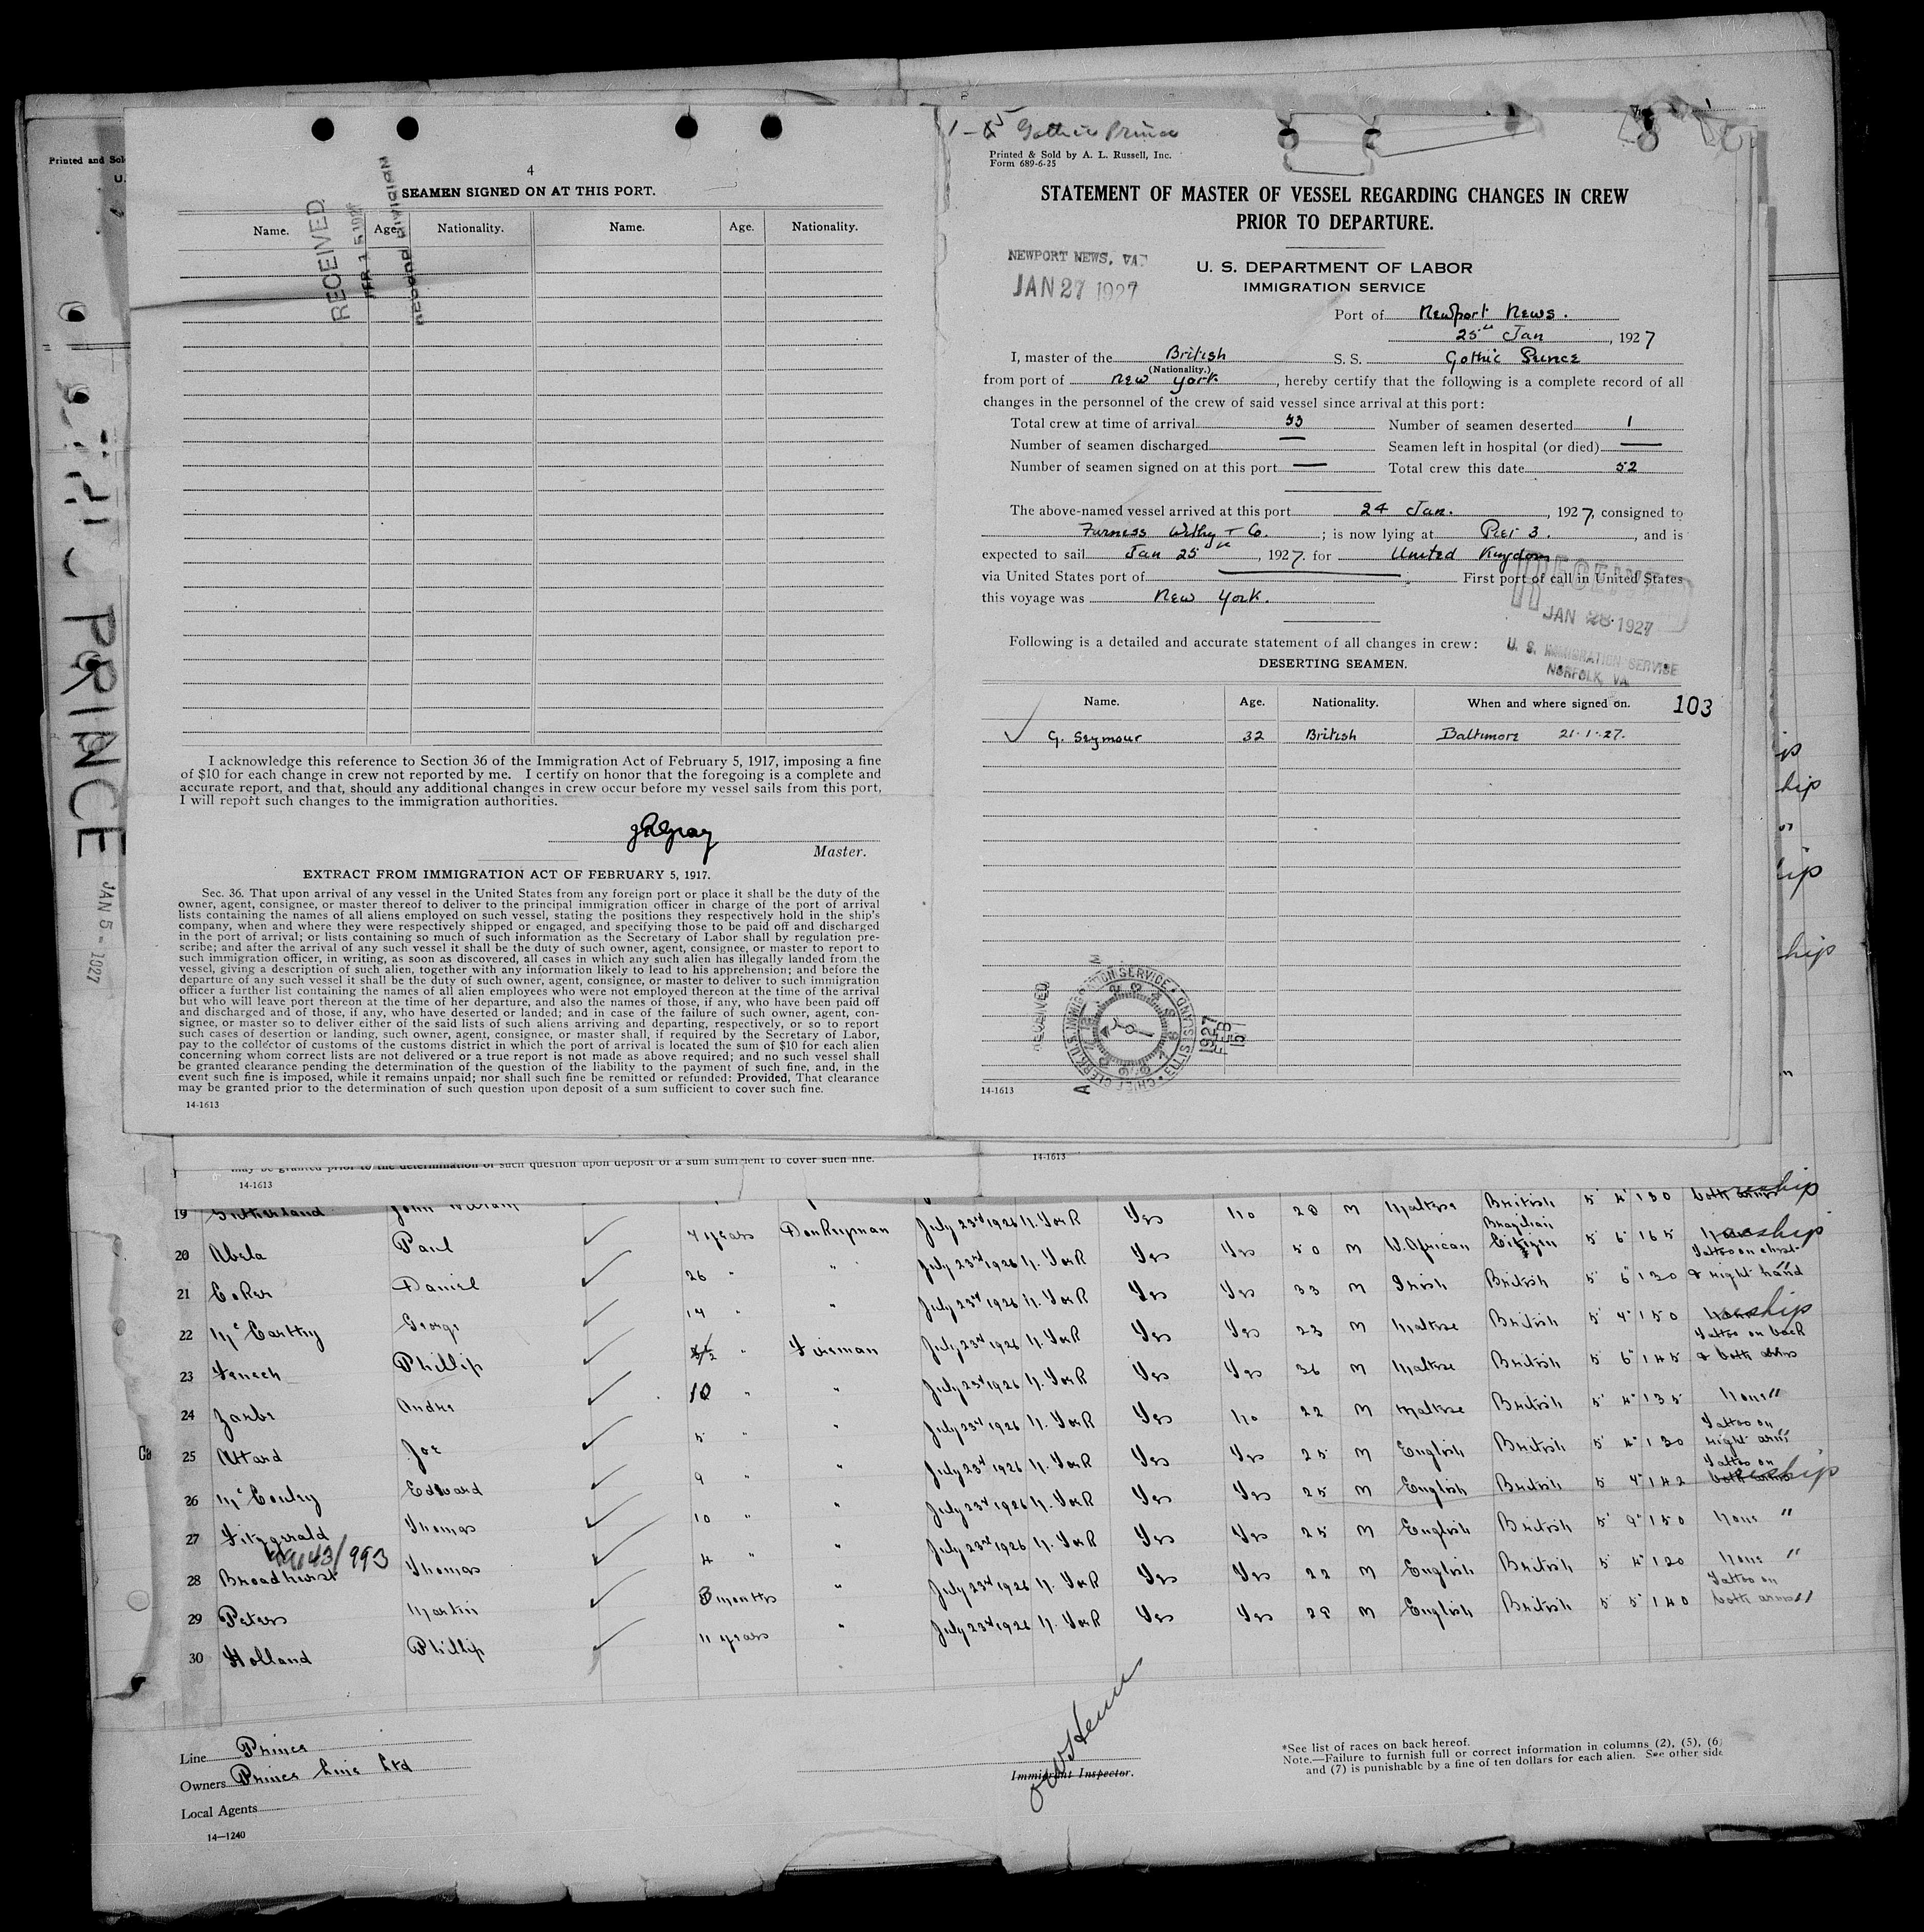 Printed and Sol
U.
PRINCE
JAN 5 - 1927
4
SEAMEN SIGNED ON AT THIS PORT.
RECEIVED
Name. Age. Nationality. Name. Age. Nationality.
I acknowledge this reference to Section 36 of the Immigration Act of February 5, 1917, imposing a fine
of $10 for each change in crew not reported by me. I certify on honor that the foregoing is a complete and
accurate report, and that, should any additional changes in crew occur before my vessel sails from this port,
I will report such changes to the immigration authorities.
Gray
Master.
EXTRACT FROM IMMIGRATION ACT OF FEBRUARY 5, 1917.
Sec. 36. That upon arrival of any vessel in the United States from any foreign port or place it shall be the duty of the
owner, agent, consignee, or master thereof to deliver to the principal immigration officer in charge of the port of arrival
lists containing the names of all aliens employed on such vessel, stating the positions they respectively hold in the ship's
company, when and where they were respectively shipped or engaged, and specifying those to be paid off and discharged
in the port of arrival; or lists containing so much of such information as the Secretary of Labor shall by regulation pre-
scribe; and after the arrival of any such vessel it shall be the duty of such owner, agent, consignee, or master to report to
such immigration officer, in writing, as soon as discovered, all cases in which any such alien has illegally landed from the
vessel, giving a description of such alien, together with any information likely to lead to his apprehension; and before the
departure of any such vessel it shall be the duty of such owner, agent, consignee, or master to deliver to such immigration
officer a further list containing the names of all alien employees who were not employed thereon at the time of the arrival
but who will leave port thereon at the time of her departure, and also the names of those, if any, who have been paid off
and discharged and of those, if any, who have deserted or landed; and in case of the failure of such owner, agent, con-
signee, or master so to deliver either of the said lists of such aliens arriving and departing, respectively, or so to report
such cases of desertion or landing, such owner, agent, consignee, or master shall, if required by the Secretary of Labor,
pay to the collector of customs of the customs district in which the port of arrival is located the sum of $10 for each alien
concerning whom correct lists are not delivered or a true report is not made as above required; and no such vessel shall
be granted clearance pending the determination of the question of the liability to the payment of such fine, and, in the
event such fine is imposed, while it remains unpaid; nor shall such fine be remitted or refunded: Provided, That clearance
may be granted prior to the determination of such question upon deposit of a sum sufficient to cover such fine.
14-1613
Gothic Prince
Printed & Sold by A. L. Russell, Inc.
Form 689-6-25
STATEMENT OF MASTER OF VESSEL REGARDING CHANGES IN CREW
PRIOR TO DEPARTURE.
NEWPORT NEWS, VA
JAN 27 1927
U. S. DEPARTMENT OF LABOR
IMMIGRATION SERVICE
Port of Newport News.
25th Jan, 1927
I, master of the British S. S. Gothic Prince
(Nationality.)
from port of New York, hereby certify that the following is a complete record of all
changes in the personnel of the crew of said vessel since arrival at this port:
Total crew at time of arrival 53 Number of seamen deserted 1
Number of seamen discharged — Seamen left in hospital (or died) —
Number of seamen signed on at this port — Total crew this date 52
The above-named vessel arrived at this port 24 Jan., 1927, consigned to
Furness Withy + Co.; is now lying at Pier 3., and is
expected to sail Jan 25th, 1927. for United Kingdom
via United States port of — First port of call in United States
this voyage was New York.
RECEIVED
JAN 28 1927
U. S. IMMIGRATION SERVICE
NORFOLK, VA.
Following is a detailed and accurate statement of all changes in crew:
DESERTING SEAMEN.
Name. Age. Nationality. When and where signed on.
103
G. Seymour 32 British Baltimore 21.1.27.
RECEIVED
1927
FEB
15
14-1613
may be granted prior to the determination of such question upon deposit of a sum sufficient to cover such fine.
14-1613
14-1613
19 Sutherland John William
20 Abela Paul 7 years Donkeyman July 23rd 1926 N. York Yes No 28 M Maltese British 5' 4" 130
21 Coker Daniel 26 " " July 23rd 1926 N. York Yes Yes 50 M W. African Brazilian Citizen 5 6" 165
22 McCarthy George 14 " " July 23rd 1926 N. York Yes Yes 33 M Irish British 5' 6" 130 Tattoo on chest & right hand
23 Fenech Phillip " Fireman July 23rd 1926 N. York Yes Yes 23 M Maltese British 5' 4" 150
24 Zarbo Andre 10 " " July 23rd 1926 N. York Yes Yes 36 M Maltese British 5 6" 145 Tattoo on back & both arms
25 Attard Joe 5 " " July 23rd 1926 N. York Yes No 22 M Maltese British 5' 4" 135 None "
26 McConley Edward 9 " " July 23rd 1926 N. York Yes Yes 25 M English British 5' 4" 130 Tattoo on right arm
27 Fitzgerald Thomas 10 " " July 23rd 1926 N. York Yes Yes 25 M English British 5 4" 142 Tattoo on both arms
/993
28 Broadhurst Thomas 4 " " July 23rd 1926 N. York Yes Yes 25 M English British 5' 9" 150 None "
29 Peters Martin 3 months " July 23rd 1926 N. York Yes Yes 22 M English British 5' 4" 120 None "
30 Holland Phillip 11 years " July 23rd 1926 N. York Yes Yes 28 M English British 5' 5" 140 Tattoo on both arms
Line Prince
Owners Prince Line Ltd
Local Agents
14—1240
Immigrant Inspector.
*See list of races on back hereof.
Note.—Failure to furnish full or correct information in columns (2), (5), (6)
and (7) is punishable by a fine of ten dollars for each alien. See other side